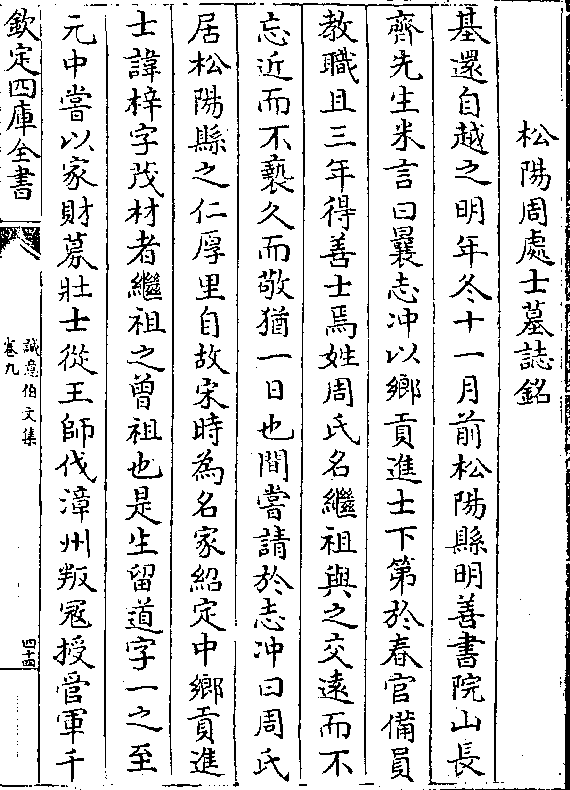 松陽周處士墓誌銘
基還自越之明年冬十一月前松陽縣明善書院山長
齊先生来言曰曩志冲以鄉貢進士下第於春官備員
教職且三年得善士焉姓周氏名繼祖與之交遠而不
忘近而不褻久而敬猶一日也間嘗請於志冲曰周氏
居松陽縣之仁厚里自故宋時為名家紹定中鄉貢進
士諱梓字茂材者繼祖之曾祖也是生留道字一之至
元中嘗以家財募壯士從王師伐漳州叛冦授管軍千
欽定四庫全書
誠意伯文集
卷九
四十四